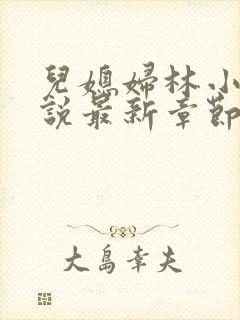 兒媳婦林小
說最新章節
大島幸夫